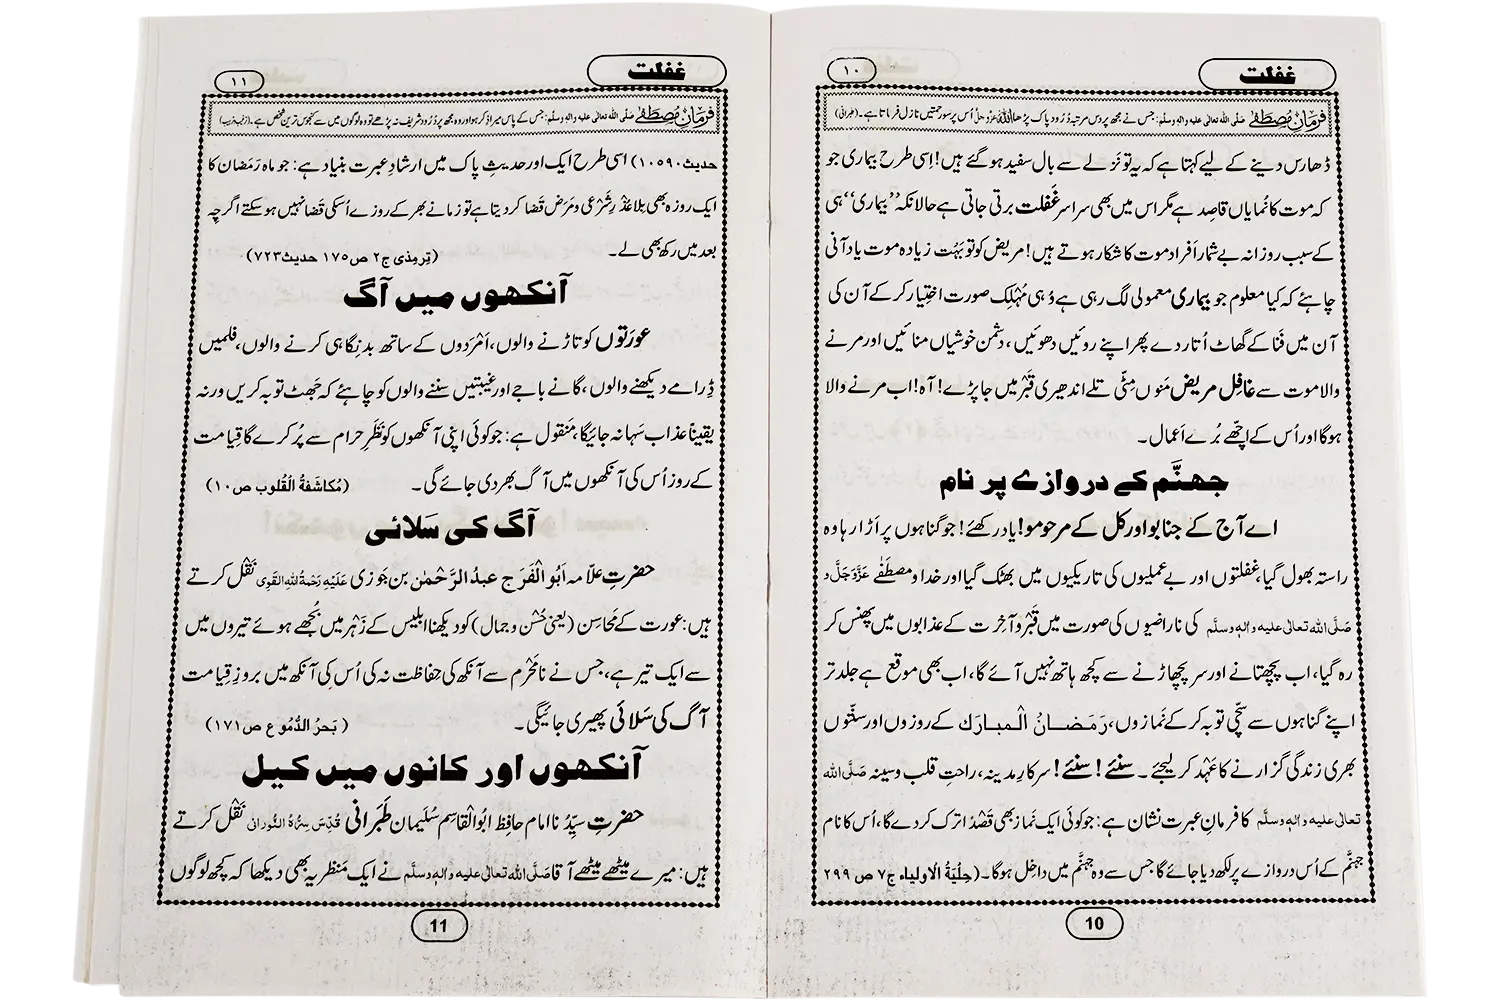 غفلت
۱۰
فرمانِ مصطفےٰ صلی اللہ تعالیٰ علیہ والہٖ وسلم: جس نے مجھ پر دس مرتبہ دُرُود پاک پڑھا اللہ عزوجل اُس پر سو رحمتیں نازل فرماتا ہے۔ (طبرانی)
ڈھارس دینے کے لیے کہتا ہے کہ یہ تو نَزلے سے بال سفید ہوگئے ہیں! اِسی طرح بیماری جو
کہ موت کا نُمایاں قاصِد ہے مگر اس میں بھی سراسر غَفلت برتی جاتی ہے حالانکہ ’’بیماری‘‘ ہی
کے سبب روزانہ بے شمار اَفراد موت کا شکار ہوتے ہیں! مریض کو تو بَہُت زیادہ موت یاد آنی
چاہئے کہ کیا معلوم جو بیماری معمولی لگ رہی ہے وُہی مُہْلِک صورت اختِیار کر کے آن کی
آن میں فنا کے گھاٹ اُتار دے پھر اپنے روئیں دھوئیں، دشمن خوشیاں منائیں اور مرنے
والا موت سے غافِل مریض مَنوں مِٹّی تلے اندھیری قَبْر میں جا پڑے! آہ! اب مرنے والا
ہوگا اور اُس کے اچّھے بُرے اَعمال۔
جہنَّم کے دروازے پر نام
اے آج کے جنابو اور کل کے مرحومو! یاد رکھئے! جو گناہوں پر اَڑا رہا وہ
راستہ بھول گیا، غفلتوں اور بے عملیوں کی تاریکیوں میں بھٹک گیا اور خدا و مصطَفٰے عَزَّوَجَلَّ و
صَلَّی اللہ تعالٰی علیہ و اٰلہٖ وسلَّم کی ناراضیوں کی صورت میں قَبْر و آخِرت کے عذابوں میں پھنس کر
رہ گیا، اب پچھتانے اور سر پچھاڑنے سے کچھ ہاتھ نہیں آئے گا، اب بھی موقع ہے جلد تر
اپنے گناہوں سے سچّی توبہ کر کے نَمازوں، رَمَضانُ الْمبارَك کے روزوں اور سنّتوں
بھری زندگی گزارنے کا عَہْد کر لیجئے۔ سنئے! سنئے! سرکارِ مدینہ، راحتِ قلب و سینہ صَلَّی اللہ
تعالٰی علیہ و اٰلہٖ وسلَّم کا فرمانِ عبرت نشان ہے: جو کوئی ایک نَماز بھی قَصْدًا ترک کر دے گا، اُس کا نام
جہنَّم کے اُس دروازے پر لکھ دیا جائے گا جس سے وہ جہنَّم میں داخِل ہوگا۔ (حِلْیَۃُ الْاولیاء ج۷ ص ۲۹۹
10
غفلت
۱۱
فرمانِ مصطفےٰ صلی اللہ تعالیٰ علیہ والہٖ وسلم: جس کے پاس میرا ذکر ہوا اور وہ مجھ پر دُرُود شریف نہ پڑھے تو وہ لوگوں میں سے کنجوس ترین شخص ہے۔ (ترغیب وترہیب)
حدیث۱۰۵۹۰) اسی طرح ایک اور حدیثِ پاک میں ارشادِ عبرت بنیاد ہے: جو ماہِ رَمَضان کا
ایک روزہ بھی بِلا عُذْرِ شَرْعی و مَرَض قضا کر دیتا ہے تو زمانے بھر کے روزے اُسکی قَضا نہیں ہو سکتے اگرچہ
بعد میں رکھ بھی لے۔ (تِرمِذی ج۲ ص۱۷۵ حدیث۷۲۳)
آنکھوں میں آگ
عورَتوں کو تاڑنے والوں، اَمْرَدوں کے ساتھ بد نگاہی کرنے والوں، فلمیں
ڈِرامے دیکھنے والوں، گانے باجے اور غیبتیں سننے والوں کو چاہئے کہ جَھٹ توبہ کریں ورنہ
یقیناً عذاب سَہا نہ جائیگا، مَنقول ہے: جو کوئی اپنی آنکھوں کو نظَرِ حرام سے پُر کرے گا قِیامت
کے روز اُس کی آنکھوں میں آگ بھر دی جائے گی۔ (مُکاشَفۃُ الْقُلوب ص۱۰)
آگ کی سَلائی
حضرتِ علّامہ اَبُو الْفَرَج عبدُ الرَّحْمٰن بن جَوزی عَلَیْہِ رَحْمَۃُ اللہِ الْقَوِی نَقْل کرتے
ہیں: عورت کے مَحاسِن (یعنی حُسْن و جمال) کو دیکھنا ابلیس کے زَہْر میں بُجھے ہوئے تیروں میں
سے ایک تیر ہے، جس نے نامَحْرَم سے آنکھ کی حفاظت نہ کی اُس کی آنکھ میں بروزِ قِیامت
آگ کی سَلائی پھیری جائیگی۔ (بَحرُ الدُّمُوع ص۱۷۱)
آنکھوں اور کانوں میں کیل
حضرتِ سیِّدُنا امام حافِظ ابُو الْقاسِم سُلَیمان طَبَرانی قُدِّسَ سِرُّہُ النُّورانی نَقْل کرتے
ہیں: میرے میٹھے میٹھے آقا صَلَّی اللہ تعالٰی علیہ و اٰلہٖ وسلَّم نے ایک مَنظر یہ بھی دیکھا کہ کچھ لوگوں
11